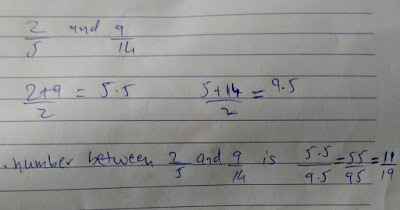 2/5 and 9/14
(2+9)/2 = 5.5 (5+14)/2 = 9.5
. number between 2/5 and 9/14 is 5.5/9.5 = 55/95 = 11/19